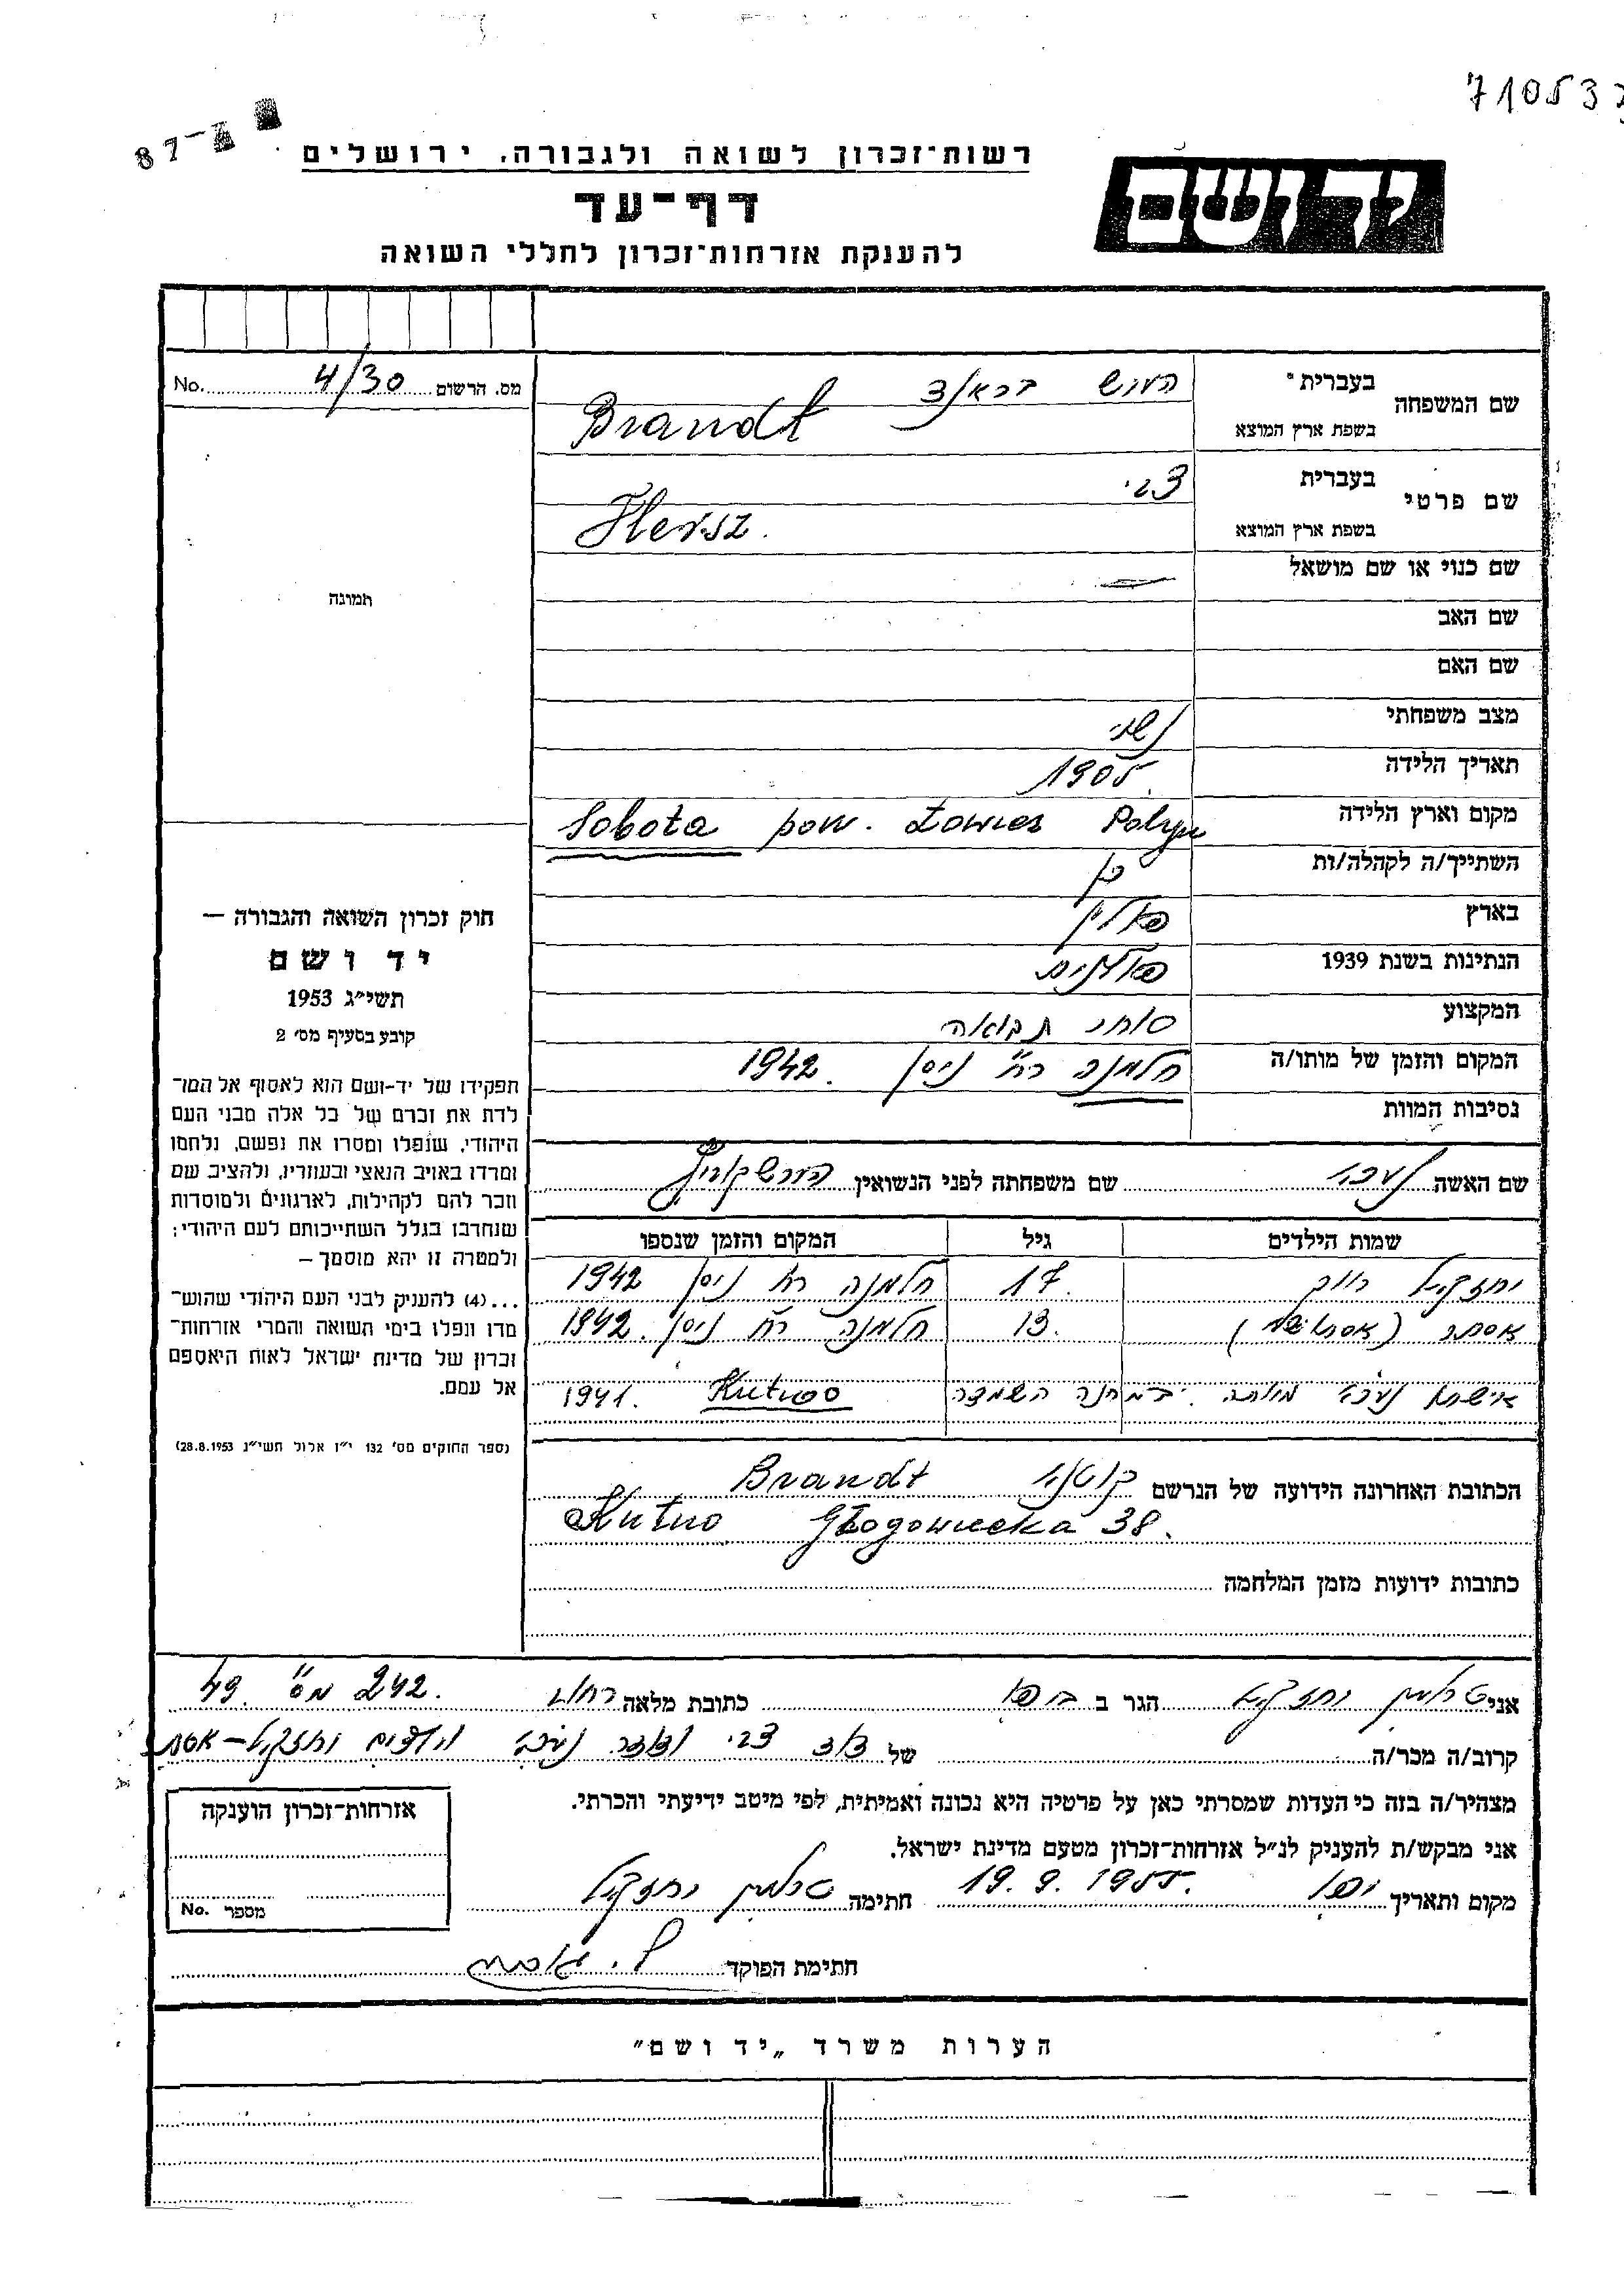 710533
87-
רשות־זכרון לשואה ולגבורה, ירושלים
יד ושם
דף־עד
להענקת אזרחות־זכרון לחללי השואה
מס. הרשום 4/30 No.
שם המשפחה
בעברית הירש בראנד
בשפת ארץ המוצא Brandt
שם פרטי
בעברית צבי
בשפת ארץ המוצא Hersz.
שם כנוי או שם מושאל —
שם האב
שם האם
מצב משפחתי נשוי
תאריך הלידה 1905.
מקום וארץ הלידה Sobota pow. Łowicz
השתייך/ה לקהלה/ות כן
בארץ פולין
הנתינות בשנת 1939 פולנית
המקצוע סוחר תבואה
המקום והזמן של מותו/ה חלמנה ר״ח ניסן 1942.
נסיבות המוות
תמונה
חוק זכרון השואה והגבורה —
יד ושם
תשי״ג 1953
קובע בסעיף מס׳ 2
תפקידו של יד-ושם הוא לאסוף אל המו־
לדת את זכרם של כל אלה מבני העם
היהודי, שנפלו ומסרו את נפשם, נלחמו
ומרדו באויב הנאצי ובעוזריו, ולהציב שם
וזכר להם לקהילות, לארגונים ולמוסדות
שנחרבו בגלל השתייכותם לעם היהודי;
ולמטרה זו יהא מוסמך —
...(4) להעניק לבני העם היהודי שהוש־
מדו ונפלו בימי השואה והמרי אזרחות־
זכרון של מדינת ישראל לאות היאספם
אל עמם.
(ספר החוקים מס׳ 132 י״ז אלול תשי״ג 28.8.1953)
שם האשה שם משפחתה לפני הנשואין
שמות הילדים גיל המקום והזמן שנספו
יחזקאל 17. חלמנה ר״ח ניסן 1942
אסתר 13. חלמנה ר״ח ניסן 1942.
אישתו מותה במחנה השמדה Kutno 1941.
הכתובת האחרונה הידועה של הנרשם קוטנו Brandt
Kutno Głogowiecka 38.
כתובות ידועות מזמן המלחמה
אני יחזקאל הגר ב יפו כתובת מלאה רחוב 242. מס״ 49.
קרוב/ה מכר/ה של דוד צבי הילדים יחזקאל – אסתר
מצהיר/ה בזה כי העדות שמסרתי כאן על פרטיה היא נכונה ואמיתית, לפי מיטב ידיעתי והכרתי.
אני מבקש/ת להעניק לנ״ל אזרחות־זכרון מטעם מדינת ישראל.
מקום ותאריך יפו 19.9.1955. חתימה יחזקאל
חתימת הפוקד
אזרחות־זכרון הוענקה
מספר No.
הערות משרד „יד ושם״